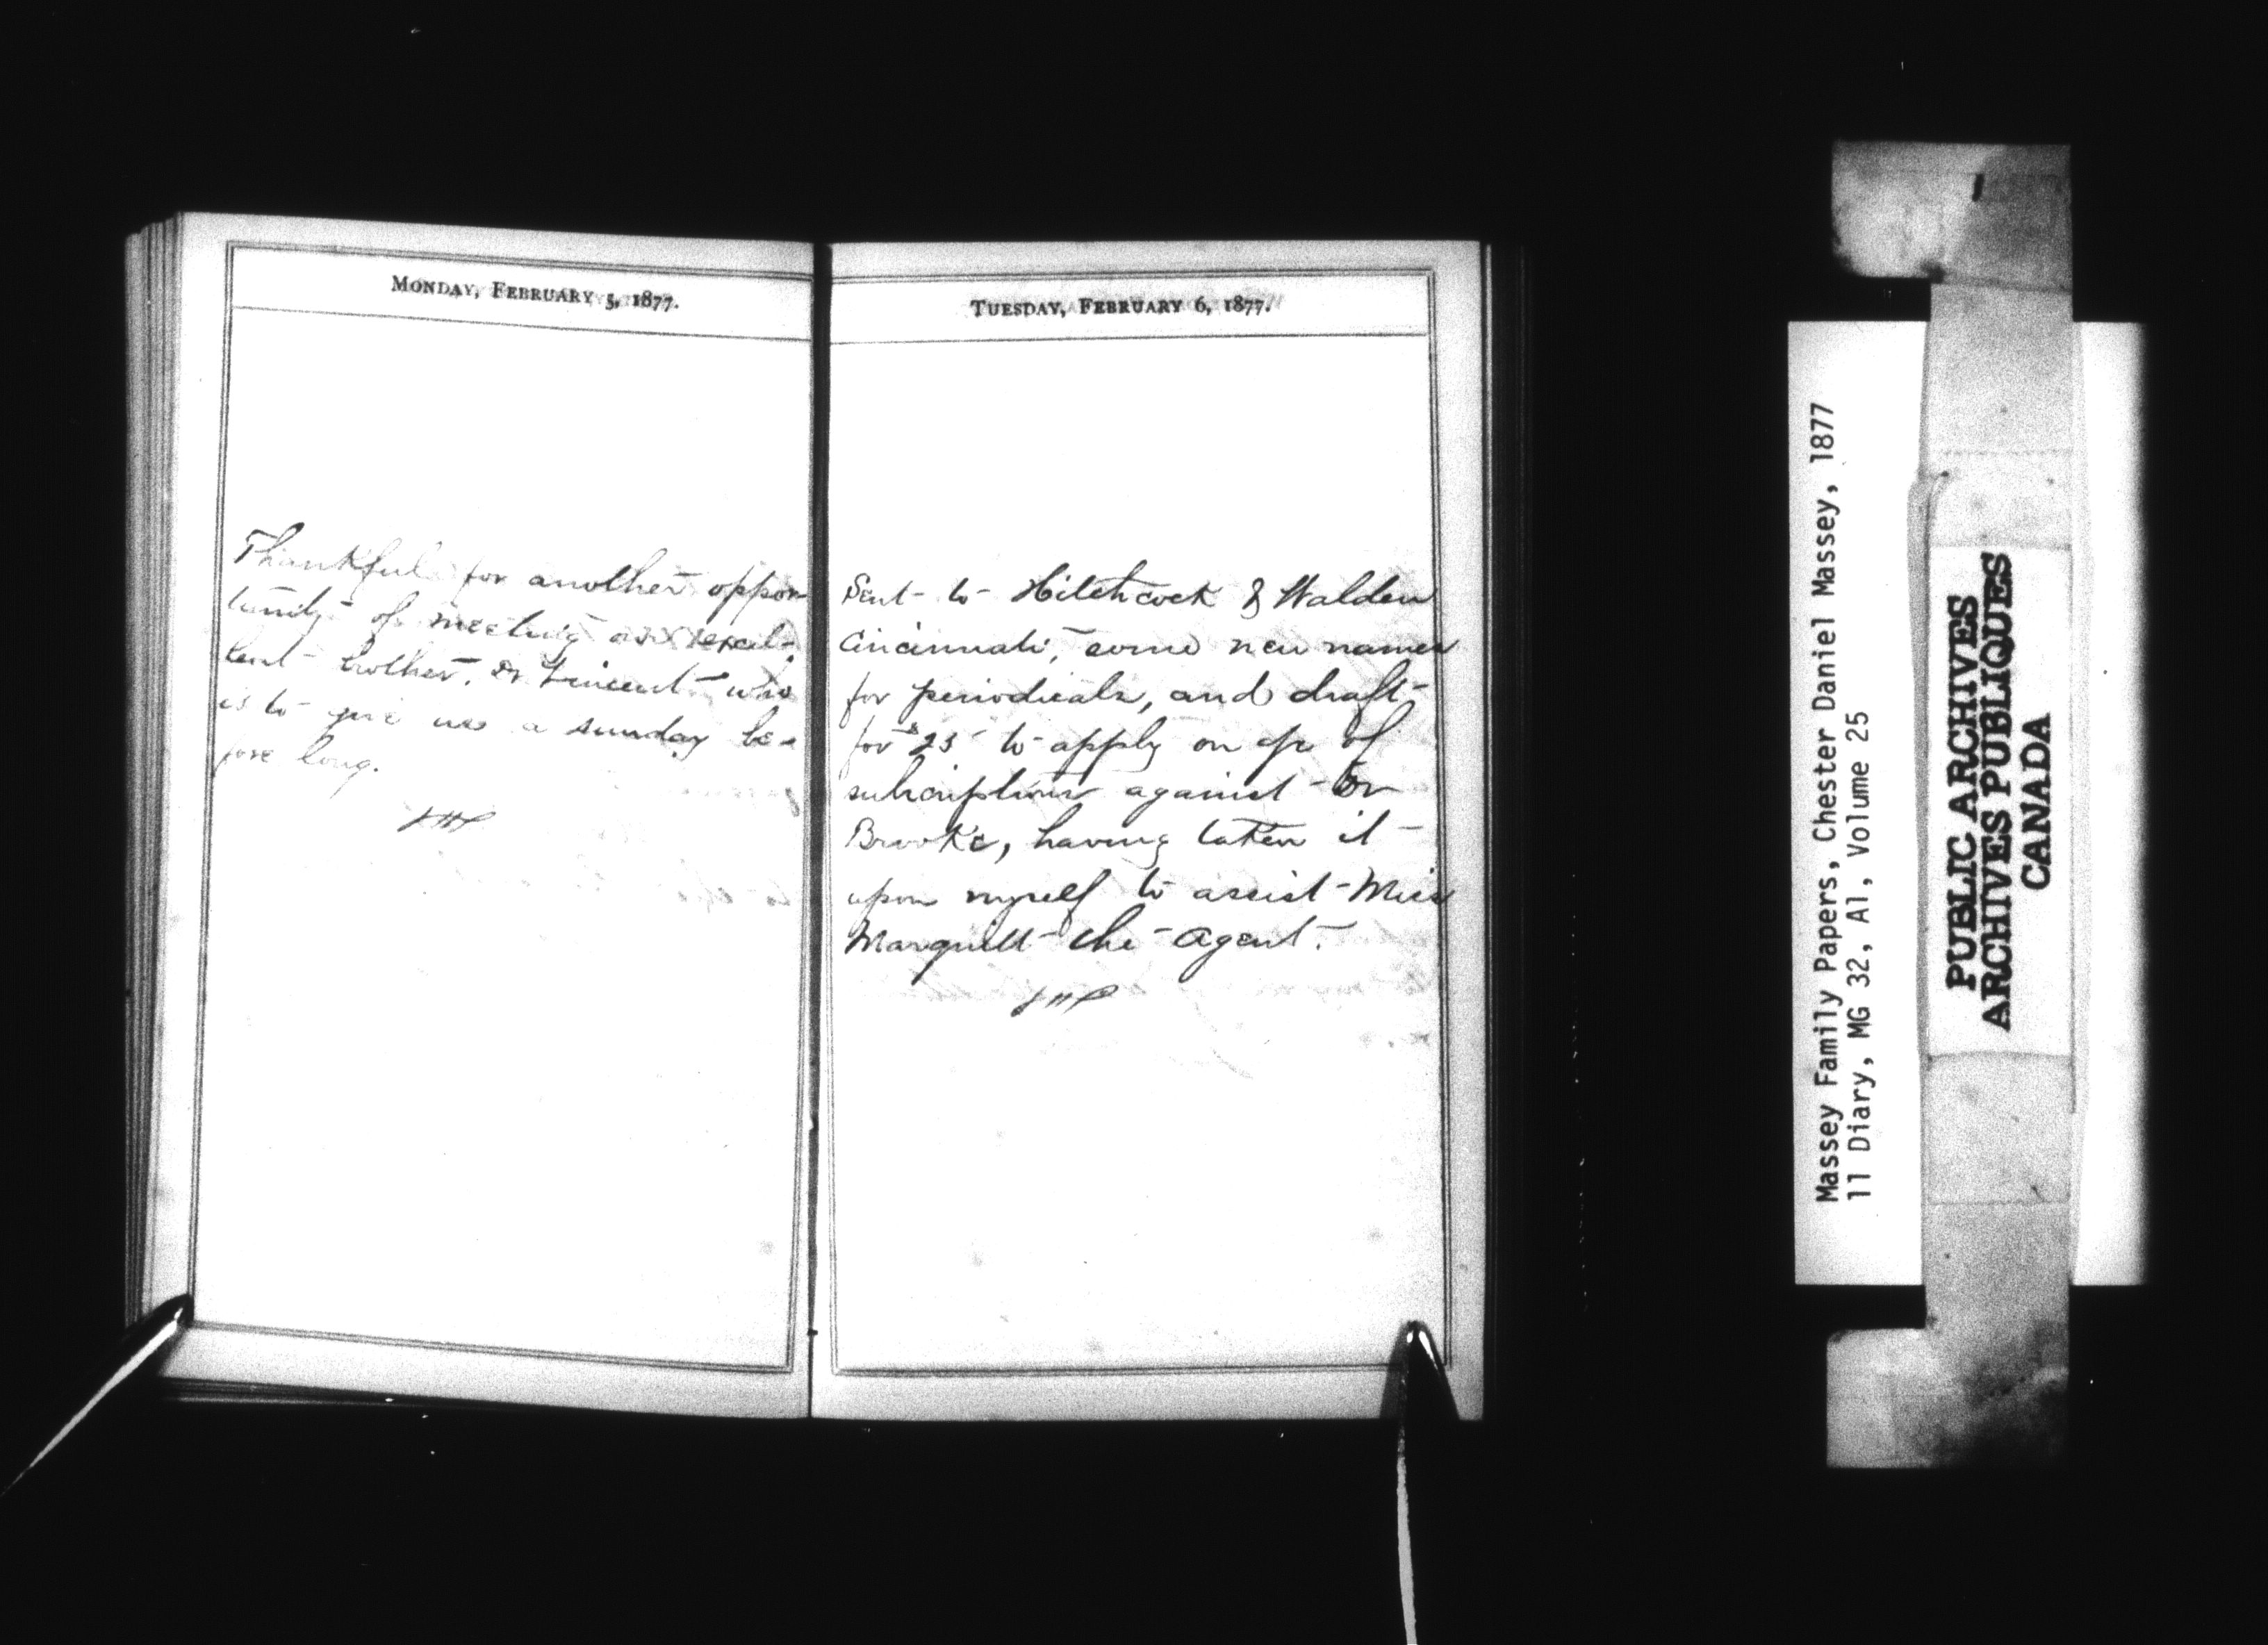 MONDAY, FEBRUARY 5, 1877.
Thankful for another oppor
tunity of meeting our excel-
lent brother, Dr Vincent who
is to give us a sunday be-
fore long.
TUESDAY, FEBRUARY 6, 1877.
Sent to Hitchcock & Walden
Cincinnati, some new names
for periodicals, and draft
for $25 to apply on a/c of
subscriptions against Dr
Brooke, having taken it
upon myself to assist Miss
the Agent.
Massey Family Papers, Chester Daniel Massey, 1877
11 Diary, MG 32, A1, Volume 25
PUBLIC ARCHIVES
ARCHIVES PUBLIQUES
CANADA